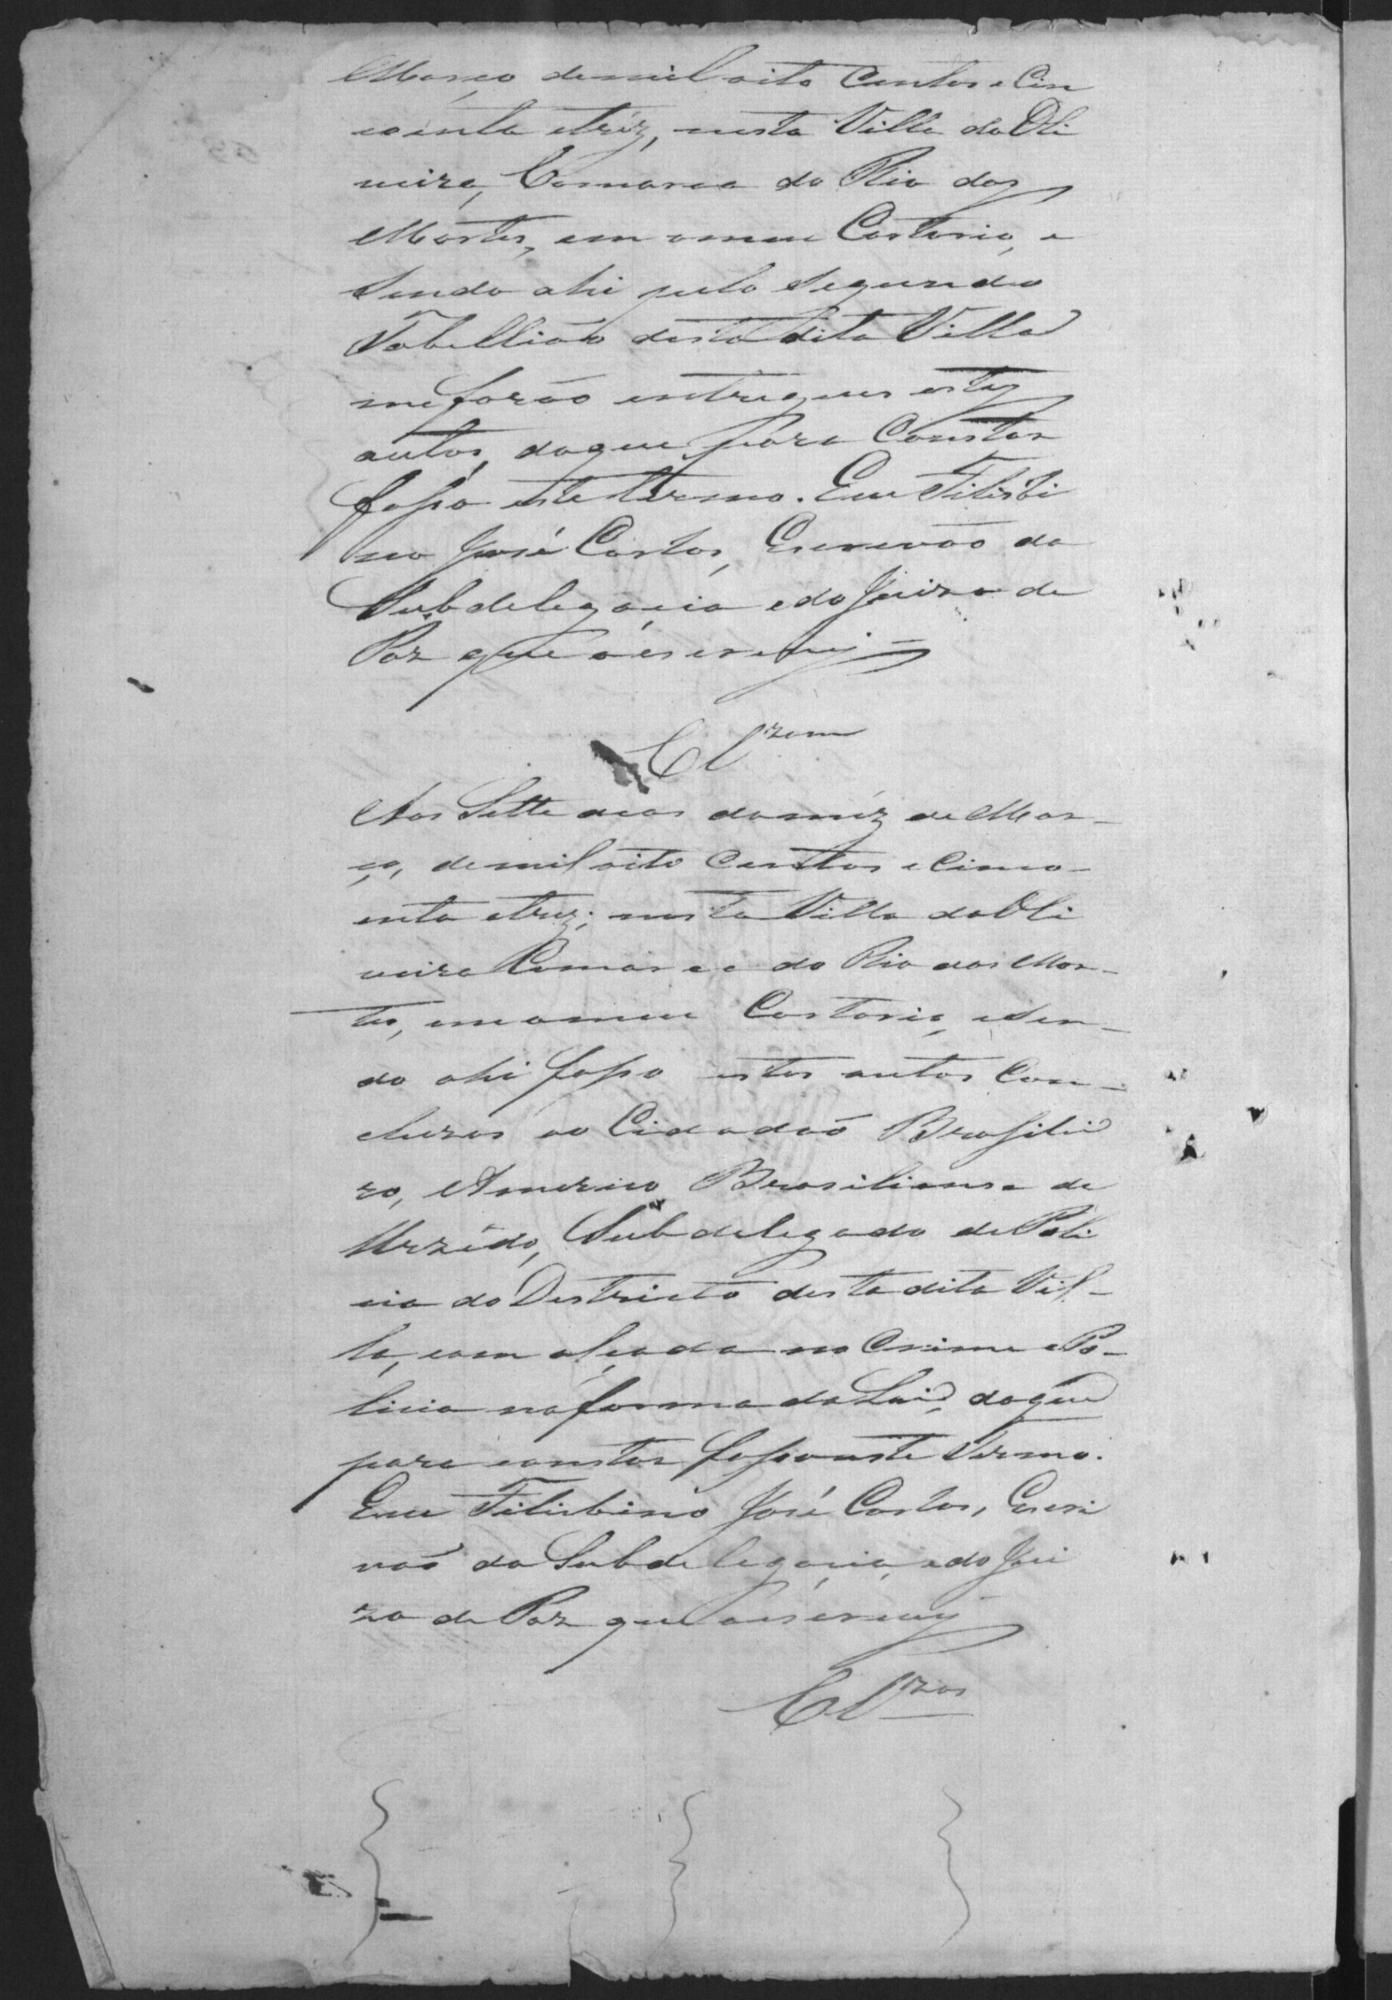 Março de mil oito Centos e Cin
coenta e tréz, nesta Villa da Oli
veira, Comarca do Rio das
Mortes, em o meu Cartorio, e
sendo ahi pelo Segundo
Tabellião desta dita Villa
me forão entregues estes
autos, do que para Constar
fasso este termo. Eu Filisbi
no José Cartos, Escrevão da
Subdelegacia e do Juizo de
Páz que o escrevy =
Cl.zam
Aos Sette dias do méz de Mar-
ço, de mil oito Centos e Cinco-
enta e trez; nesta Villa da Oli
veira Comarca do Rio das Mor-
tes, em o meu Cartorio, e sen-
do ahi fasso estes autos Con-
cluzos ao Cidadaõ Brasilei
ro, Americo Brasiliense de
Subdelegado de Poli
cia do Destricto desta dita Vil-
la, com alçada no Crime e Po-
licia na forma da Lei, do que
para constar fasso este Termo.
Eu Filisbino José Cartos, Escri
vaõ da Subdelegacia, e do Jui
zo de Paz que o escrevy
Cl.zos